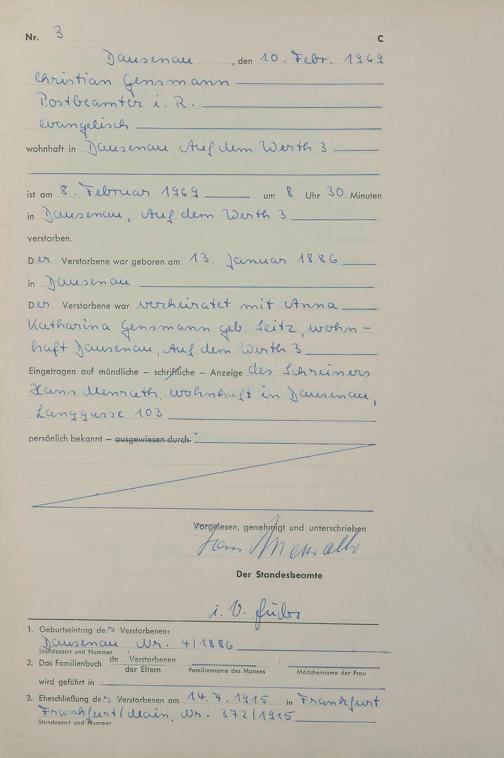 Nr. 3 C
Dausenau, den 10. Febr. 1969
Christian Gensmann
Postbeamter i. R.
evangelisch
wohnhaft in Dausenau, Auf dem Werth 3
ist am 8. Februar 1969 um 8 Uhr 30 Minuten
in Dausenau, Auf dem Werth 3
verstorben.
Der Verstorbene war geboren am 13. Januar 1886
in Dausenau
Der Verstorbene war verheiratet mit Anna
Katharina Gensmann geb. Seitz, wohn-
haft Dausenau, Auf dem Werth 3
Eingetragen auf mündliche – schriftliche – Anzeige des Schreiners
Hans Menrath, wohnhaft in Dausenau,
Langgasse 103
persönlich bekannt – ausgewiesen durch
Vorgelesen, genehmigt und unterschrieben
Hans Menrath
Der Standesbeamte
i. V.
1. Geburtseintrag des Verstorbenen:
Dausenau Nr. 4/1886
Standesamt und Nummer
2. Das Familienbuch de Verstorbenen
der Eltern Familienname des Mannes / Mädchenname der Frau
wird geführt in
3. Eheschließung des Verstorbenen am 14.7.1915 in Frankfurt
Frankfurt/Main, Nr. 372/1915
Standesamt und Nummer